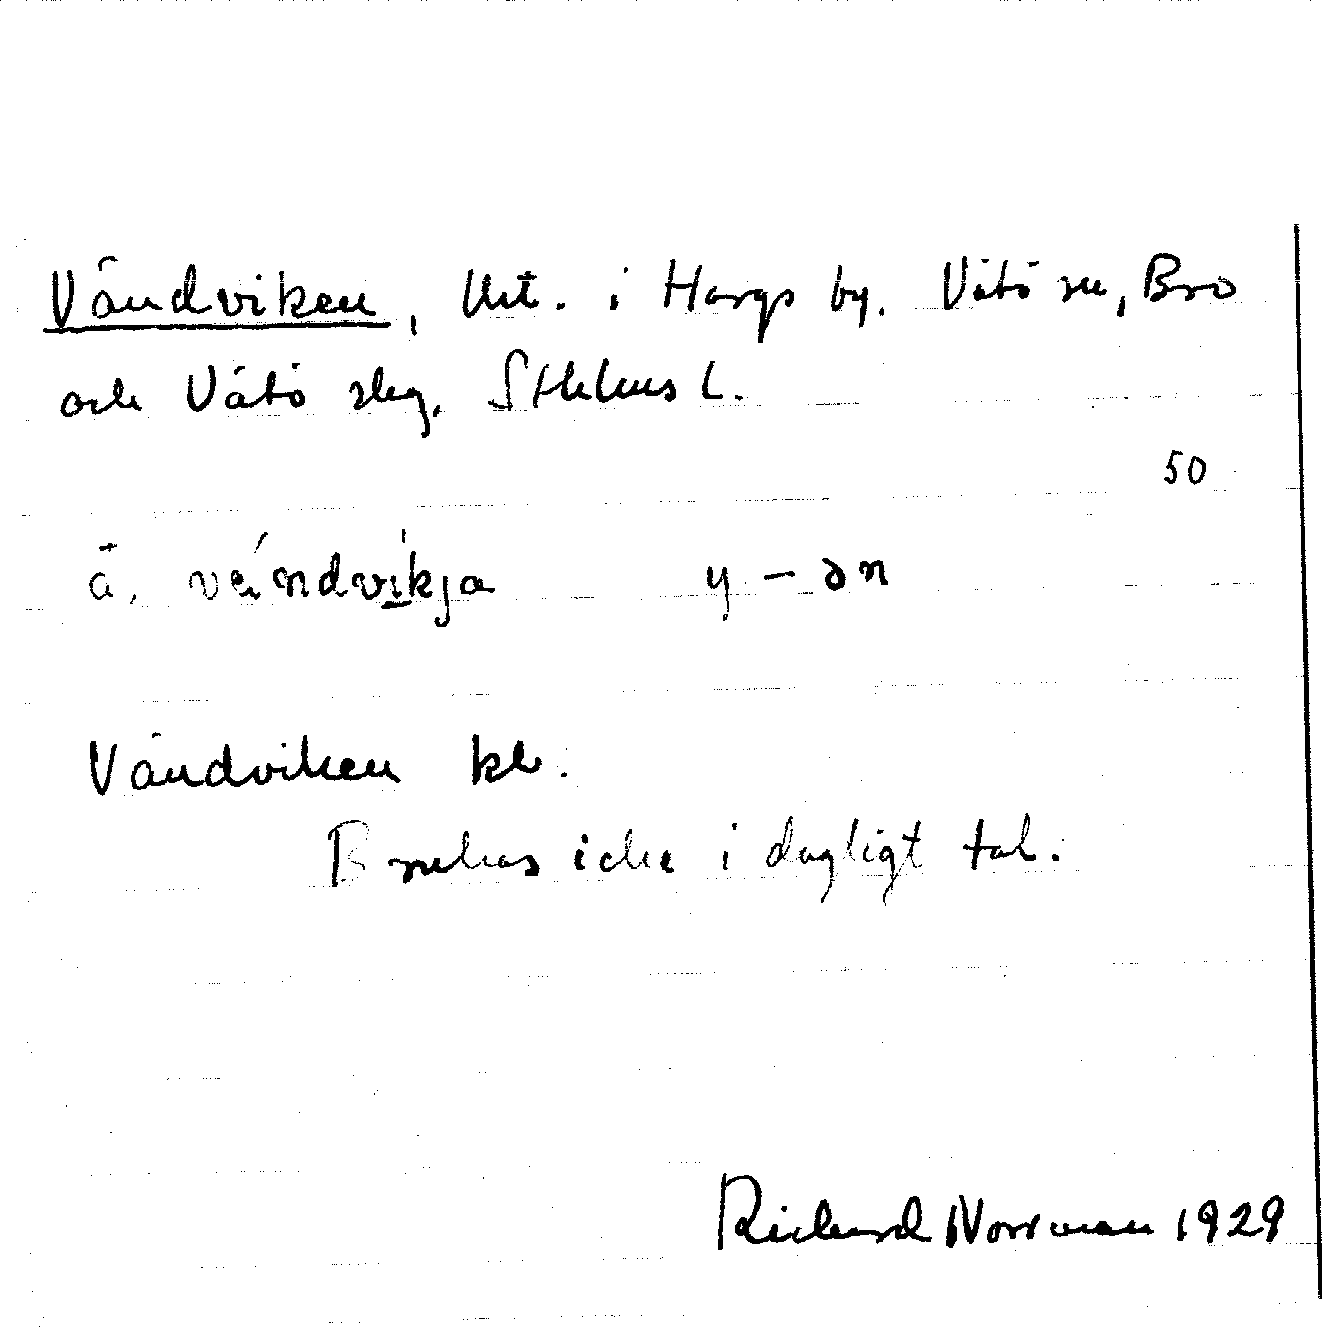 Vändviken, Vret. i Hargs by. Vätö sn, Bro
och Vätö slg. Sthlms L.
50
ä. véndvikja y – ən
Vändviken kb.
Brukas icke i dagligt tal.
Richard Norrman 1929